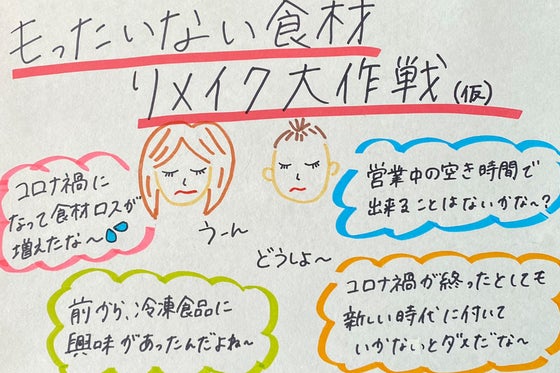 もったいない食材
リメイク大作戦(仮)
コロナ禍に
なって食材ロスが
増えたな〜
うーん
どうしよ〜
営業中の空き時間で
出来ることはないかな〜?
前から、冷凍食品に
興味があったんだよね〜
コロナ禍が終ったとしても
新しい時代に付いて
いかないとダメだな〜